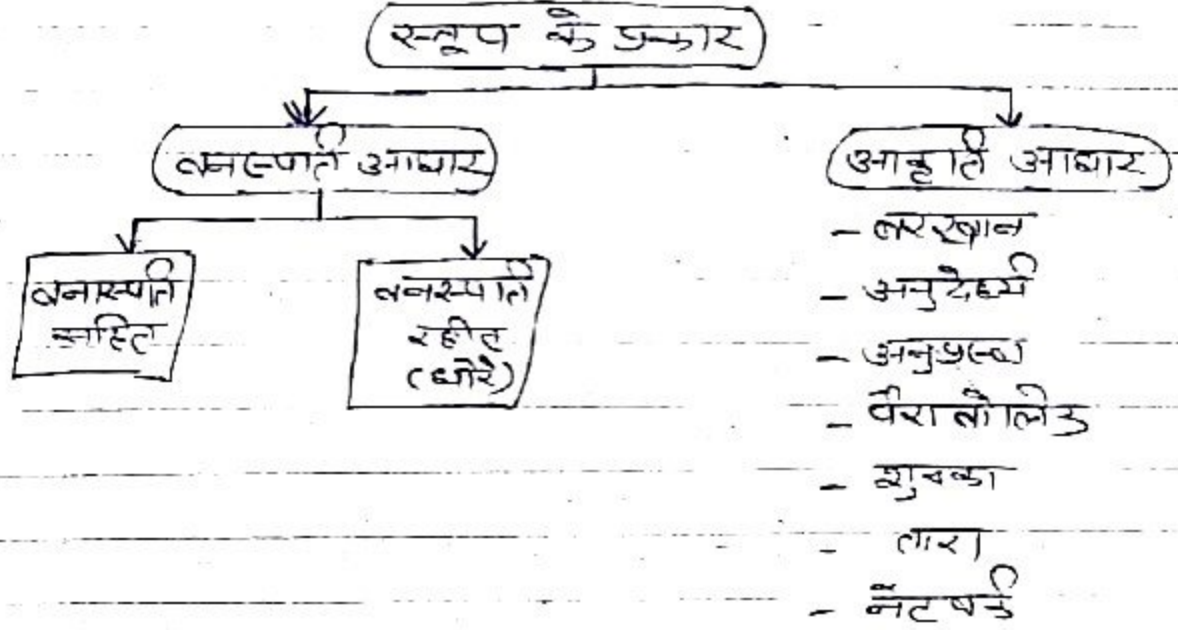 स्तूप के प्रकार
वनस्पति आधार
आकृति आधार
वनास्पति
सहित
वनस्पति
रहीत
(धोरे)
- बरखान
- अनुदैर्ध्य
- अनुप्रस्थ
- पैराबोलिक
- शुब्का
- तारा
- नेटवर्क